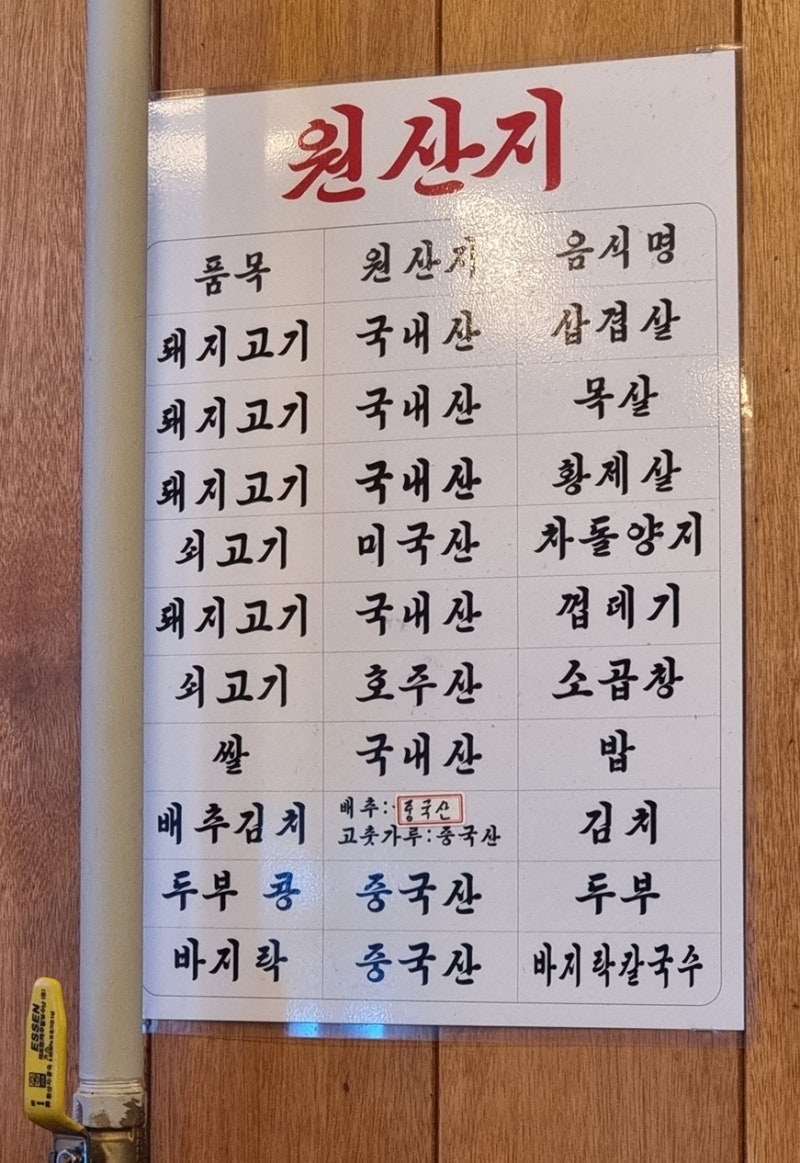 원산지
품목 원산지 음식명
돼지고기 국내산 삼겹살
돼지고기 국내산 목살
돼지고기 국내산 황제살
쇠고기 미국산 차돌양지
돼지고기 국내산 껍데기
쇠고기 호주산 소곱창
쌀 국내산 밥
배추김치 배추: 중국산 김치
고춧가루:중국산
두부 콩 중국산 두부
바지락 중국산 바지락칼국수
ESSEN